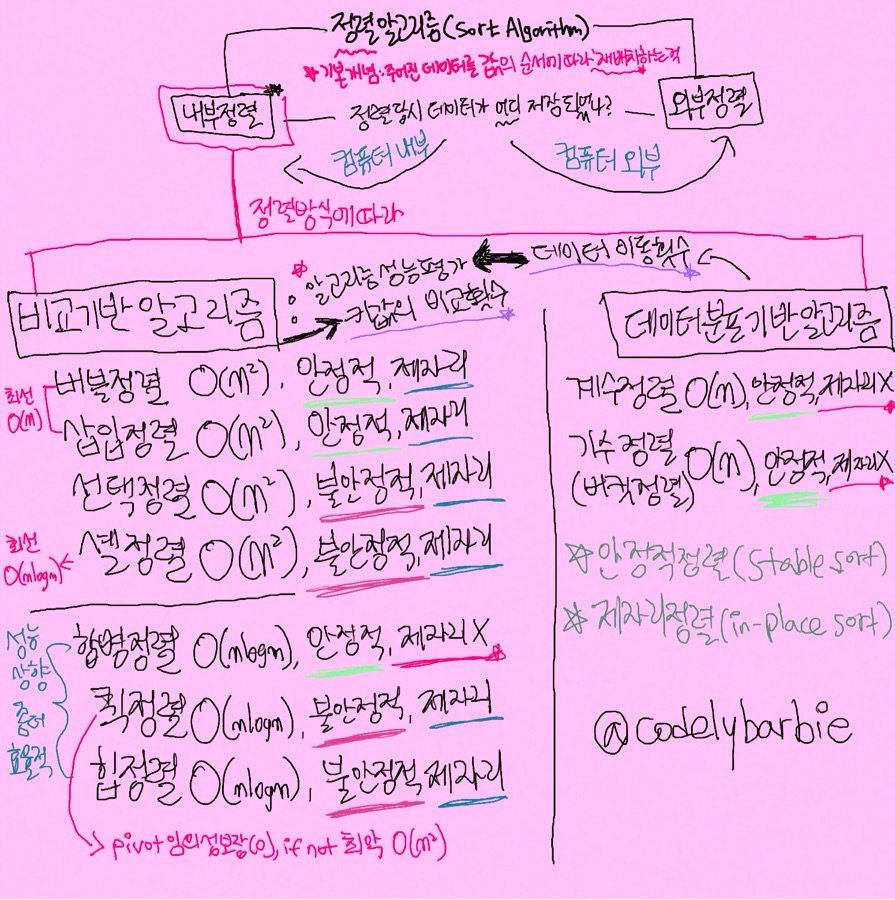 정렬알고리즘(Sort Algorithm)
기본개념: 주어진 데이터를 값의 순서에 따라 재배치하는 것
내부정렬
정렬당시 데이터가 어디 저장되었나?
외부정렬
컴퓨터 내부
컴퓨터 외부
정렬방식에 따라
비교기반 알고리즘
: 알고리즘 성능평가
키값의 비교횟수
데이터 이동횟수
데이터분포기반알고리즘
최선 O(n)
버블정렬 O(n²), 안정적, 제자리
삽입정렬 O(n²), 안정적, 제자리
선택정렬 O(n²), 불안정적, 제자리
최선 O(nlogn)
셸정렬 O(n²), 불안정적, 제자리
성능
상향
좀더
효율적
합병정렬 O(nlogn), 안정적, 제자리 X
퀵정렬 O(nlogn), 불안정적, 제자리
힙정렬 O(nlogn), 불안정적, 제자리
pivot 임의성보장(o), if not 최악 O(n²)
계수정렬 O(n), 안정적, 제자리X
기수정렬
(버킷정렬) O(n), 안정적, 제자리X
안정적정렬(stable sort)
제자리정렬(in-place sort)
@codelybarbie